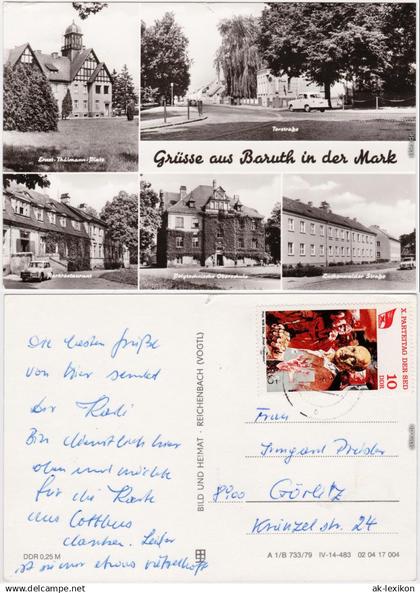 Ernst-Thälmann-Platz
Torstraße
Grüsse aus Baruth in der Mark
Parkrestaurant
Polytechnische Oberschule
Luckenwalder Straße
Die besten Grüße
von hier sendet
Dir Radi
Bin dienstlich hier
oben und möchte
für die Karte
aus Cottbus
danken. Leider
ist sie nur etwas
BILD UND HEIMAT · REICHENBACH (VOGTL)
X. PARTEITAG DER SED
10
DDR
Frau
Irmgard
8900 Görlitz
Krünzelstr. 24
DDR 0,25 M
A 1/B 733/79 IV-14-483 02 04 17 004
ak-lexikon.de